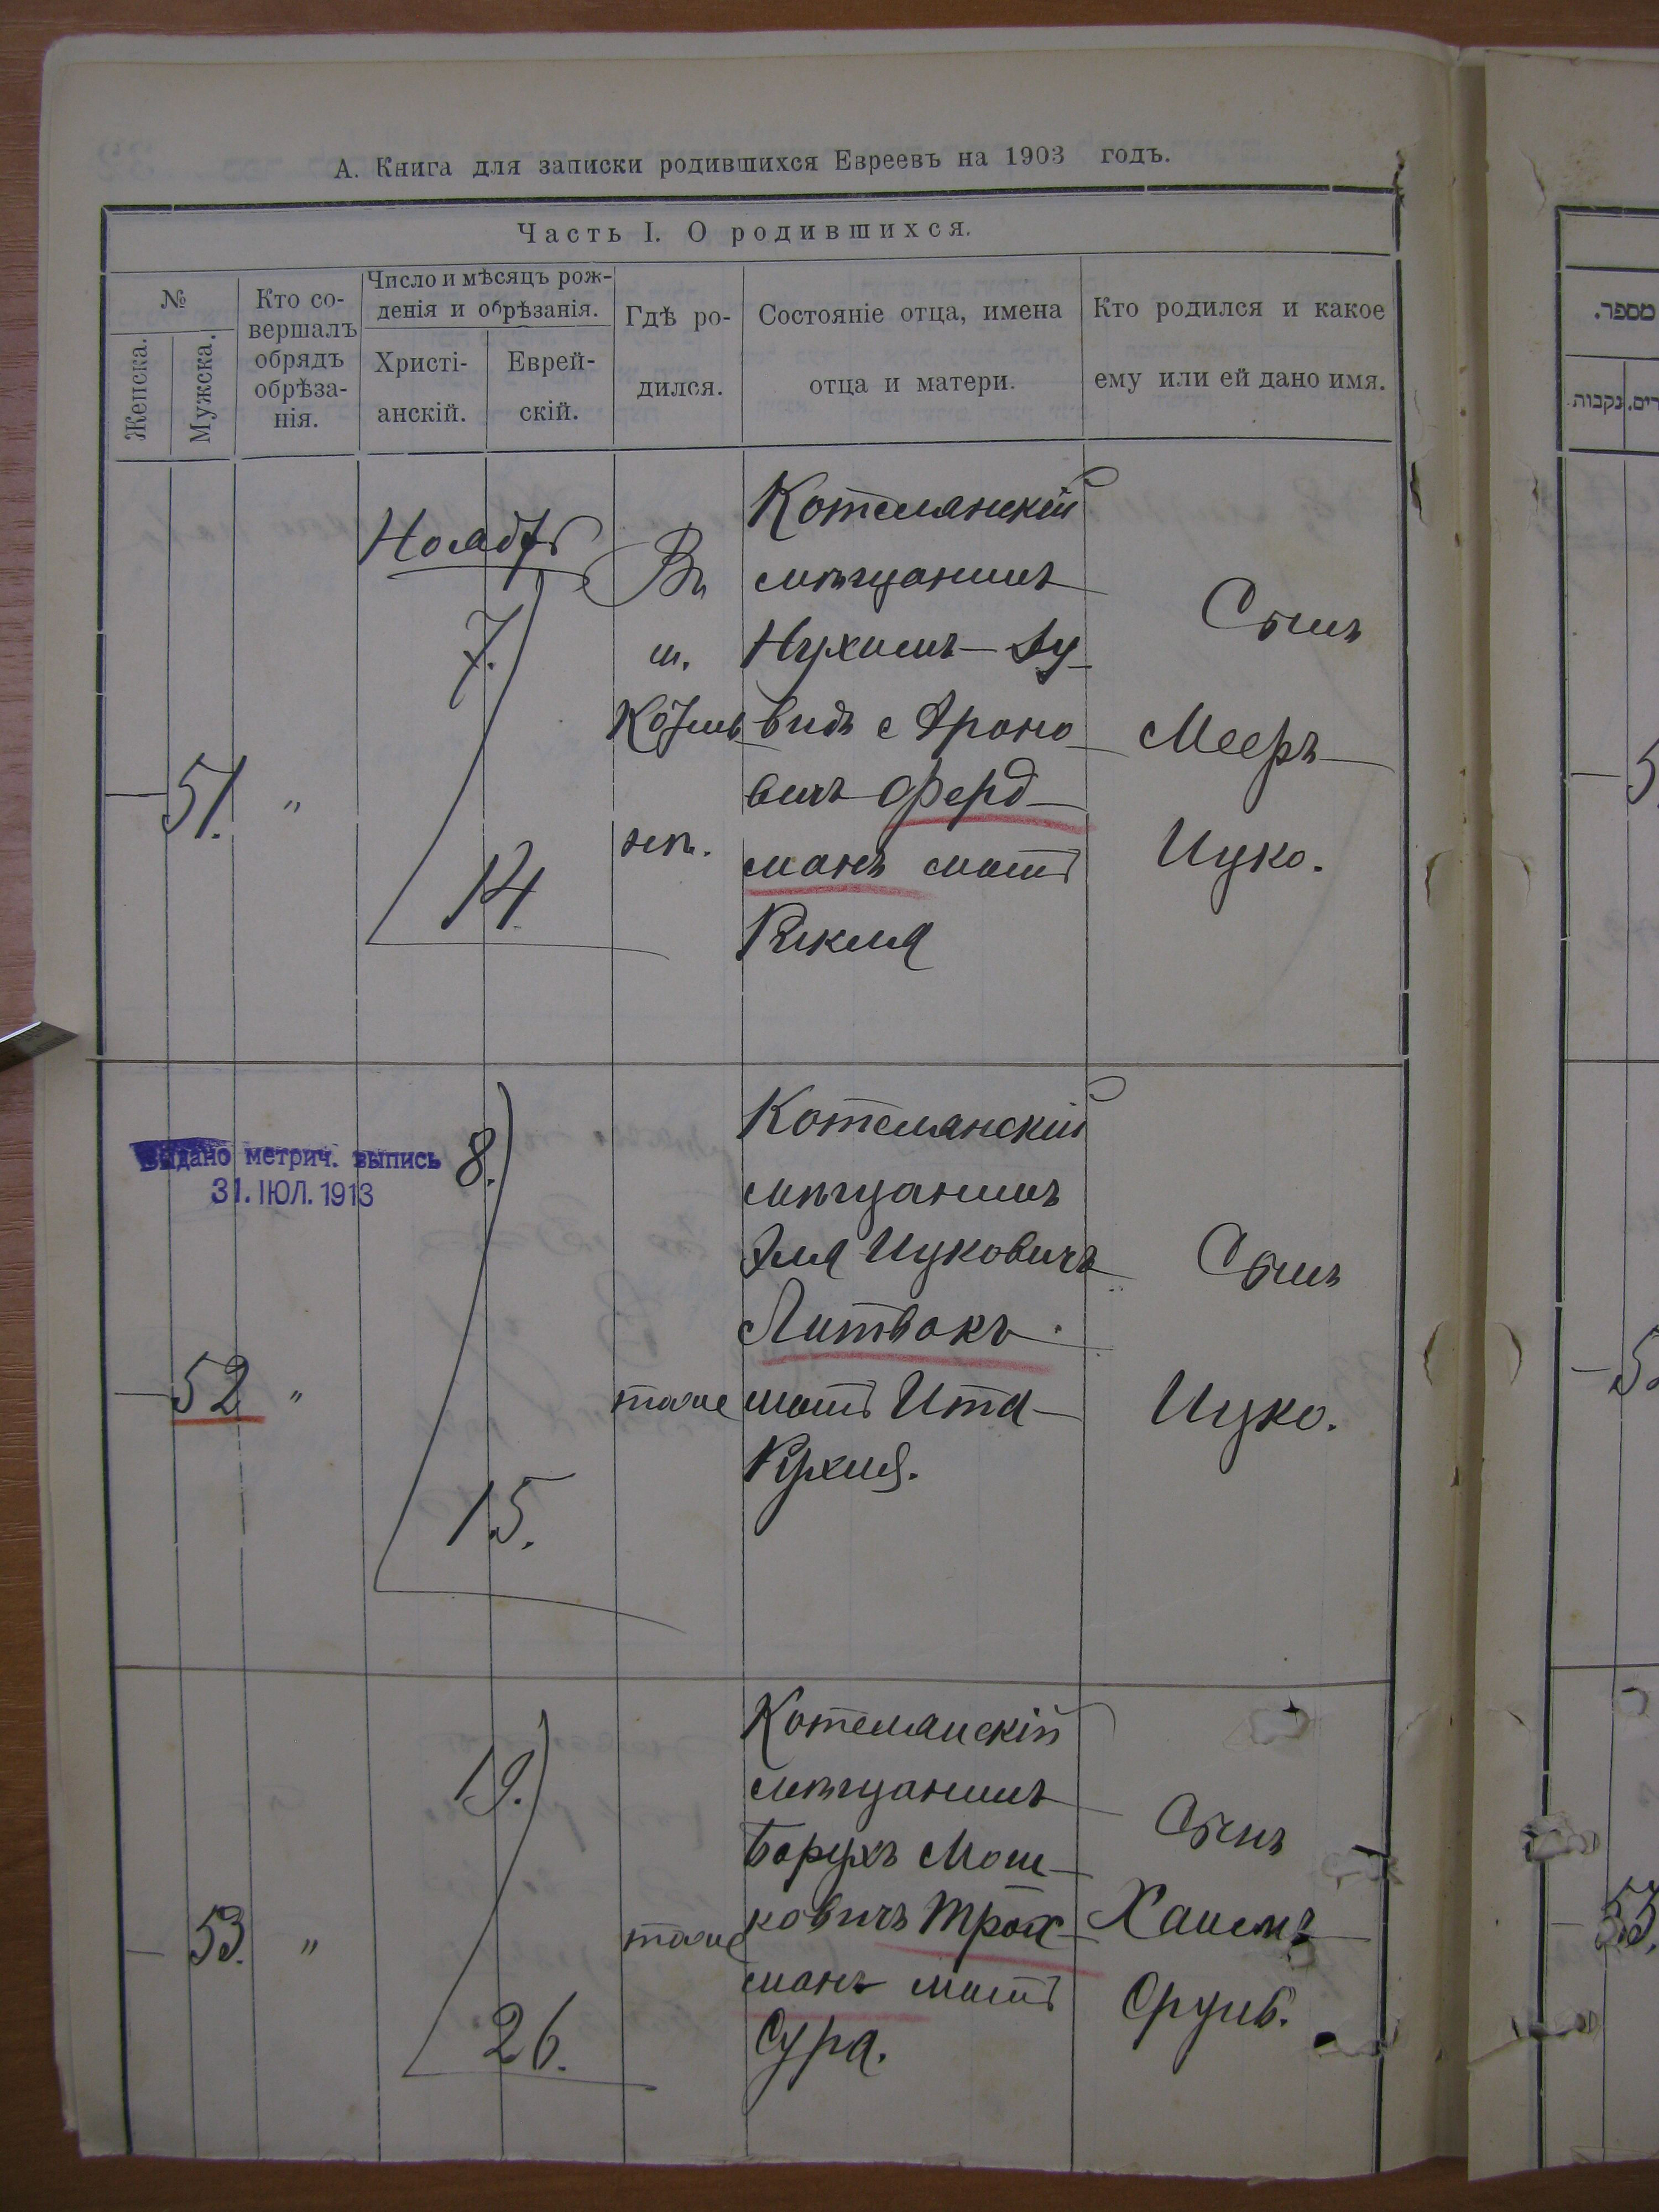 А. Книга для записки родившихся Евреевъ на 1903 годъ.
Часть I. О родившихся.
№
Женска.
Мужска.
Кто со-
вершалъ
обрядъ
обрѣза-
нія.
Число и мѣсяцъ рож-
денія и обрѣзанія.
Христі-
анскій.
Еврей-
скій.
Гдѣ ро-
дился.
Состояніе отца, имена
отца и матери.
Кто родился и какое
ему или ей дано имя.
51.
"
Ноябрь
7.
14
Въ
м.
Котельнѣ.
Котелянскій
мѣщанинъ
Нухимъ-Ду-
видъ Ароно
вичъ Ферд-
манъ мать
Рикля
Сынъ
Мееръ-
Ицко.
Выдано метрич. выпись
31. ІЮЛ. 1913
52
"
8.
15.
тоже
Котелянскій
мѣщанинъ
Эля Ицковичъ
Литвакъ
мать Ита-
Рухля.
Сынъ
Ицко.
53.
"
19.
26.
тоже
Котелянскій
мѣщанинъ
Борухъ Мош-
ковичъ Трой
манъ мать
Сура.
Сынъ
Хаимъ-
Сруль.
מספר.
נקבות
5
5
53.